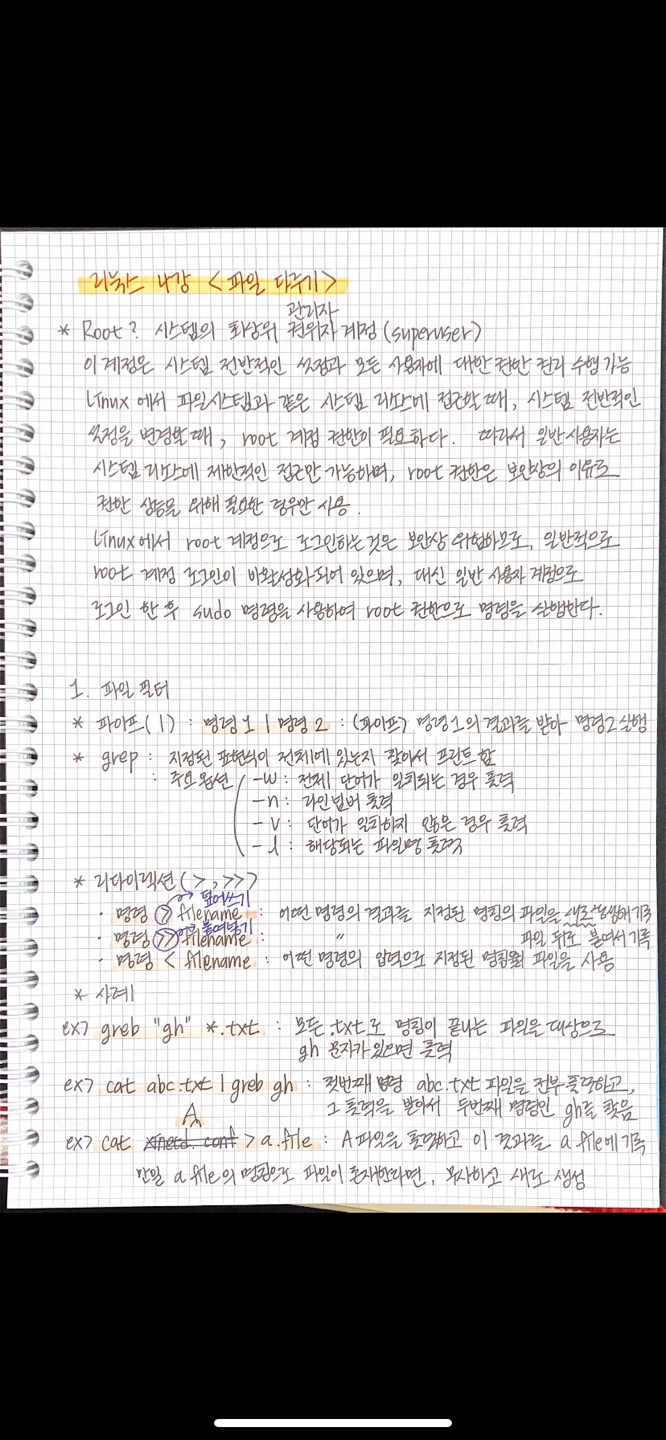 리눅스 4강 <파일 다루기>
관리자
* Root? 시스템의 최상위 권위자 계정 (superuser)
이 계정은 시스템 전반적인 설정과 모든 사용자에 대한 권한 관리 수행 가능
Linux에서 파일시스템과 같은 시스템 리소스에 접근할 때, 시스템 전반적인
설정을 변경할 때, root 계정 권한이 필요하다. 따라서 일반 사용자는
시스템 리소스에 제한적인 접근만 가능하며, root 권한은 보안상의 이유로
권한 상승을 위해 필요한 경우만 사용.
Linux에서 root 계정으로 로그인하는 것은 보안상 위험하므로, 일반적으로
root 계정 로그인이 비활성화 되어 있으며, 대신 일반 사용자 계정으로
로그인 한 후 sudo 명령을 사용하여 root 권한으로 명령을 실행한다.
1. 파일 필터
* 파이프(|) : 명령1 | 명령2 : (파이프) 명령1의 결과를 받아 명령2 실행
* grep : 지정된 표현식이 전체에 있는지 찾아서 프린트 함
: 주요 옵션 -w : 전체 단어가 일치되는 경우 출력
-n : 라인넘버 출력
-v : 단어가 일치하지 않은 경우 출력
-l : 해당되는 파일명 출력
* 리다이렉션(>, >>)
→ 덮어쓰기
· 명령 > filename : 어떤 명령의 결과를 지정된 명칭의 파일을 새로 생성해 기록
→ 이어붙여넣기
· 명령 >> filename : 〃 파일 뒤로 붙여서 기록
· 명령 < filename : 어떤 명령의 입력으로 지정된 명칭의 파일을 사용
* 사례
ex> greb "gh" *.txt : 모든 .txt로 명칭이 끝나는 파일을 대상으로
gh 문자가 있으면 출력
ex> cat abc.txt | greb gh : 첫번째 명령 abc.txt 파일을 전부 출력하고,
그 출력을 받아서 두번째 명령인 gh를 찾음
A
ex> cat xinetd.conf > a.file : A파일을 출력하고 이 결과를 a.file에 기록
만일 a.file의 명칭으로 파일이 존재한다면, 무시하고 새로 생성